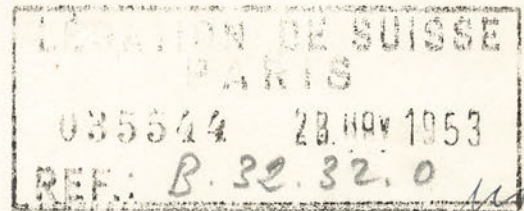 LÉGATION DE SUISSE
PARIS
035544 28.NOV 1953
REF.: B.32.32.0